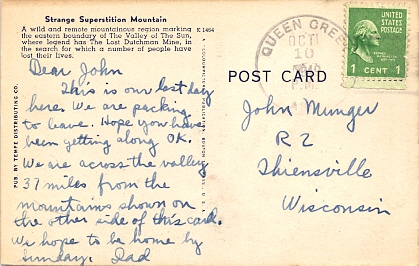 Strange Superstition Mountain
A wild and remote mountainous region marking
the eastern boundary of The Valley of The Sun,
where legend has The Lost Dutchman Mine, in
the search for which a number of people have
lost their lives.
K 1464
PUB BY TEMPE DISTRIBUTING CO.
Dear John
This is our last day
here. We are packing
to leave. Hope you have
been getting along OK.
We are across the valley
37 miles from the
mountains shown on
the other side of this card.
We hope to be home by
Sunday. Dad
QUEEN CREEK
OCT
10
P.M.
UNITED STATES
POSTAGE
1 CENT 1
POST CARD
John Munger
R 2
Thiensville
Wisconsin